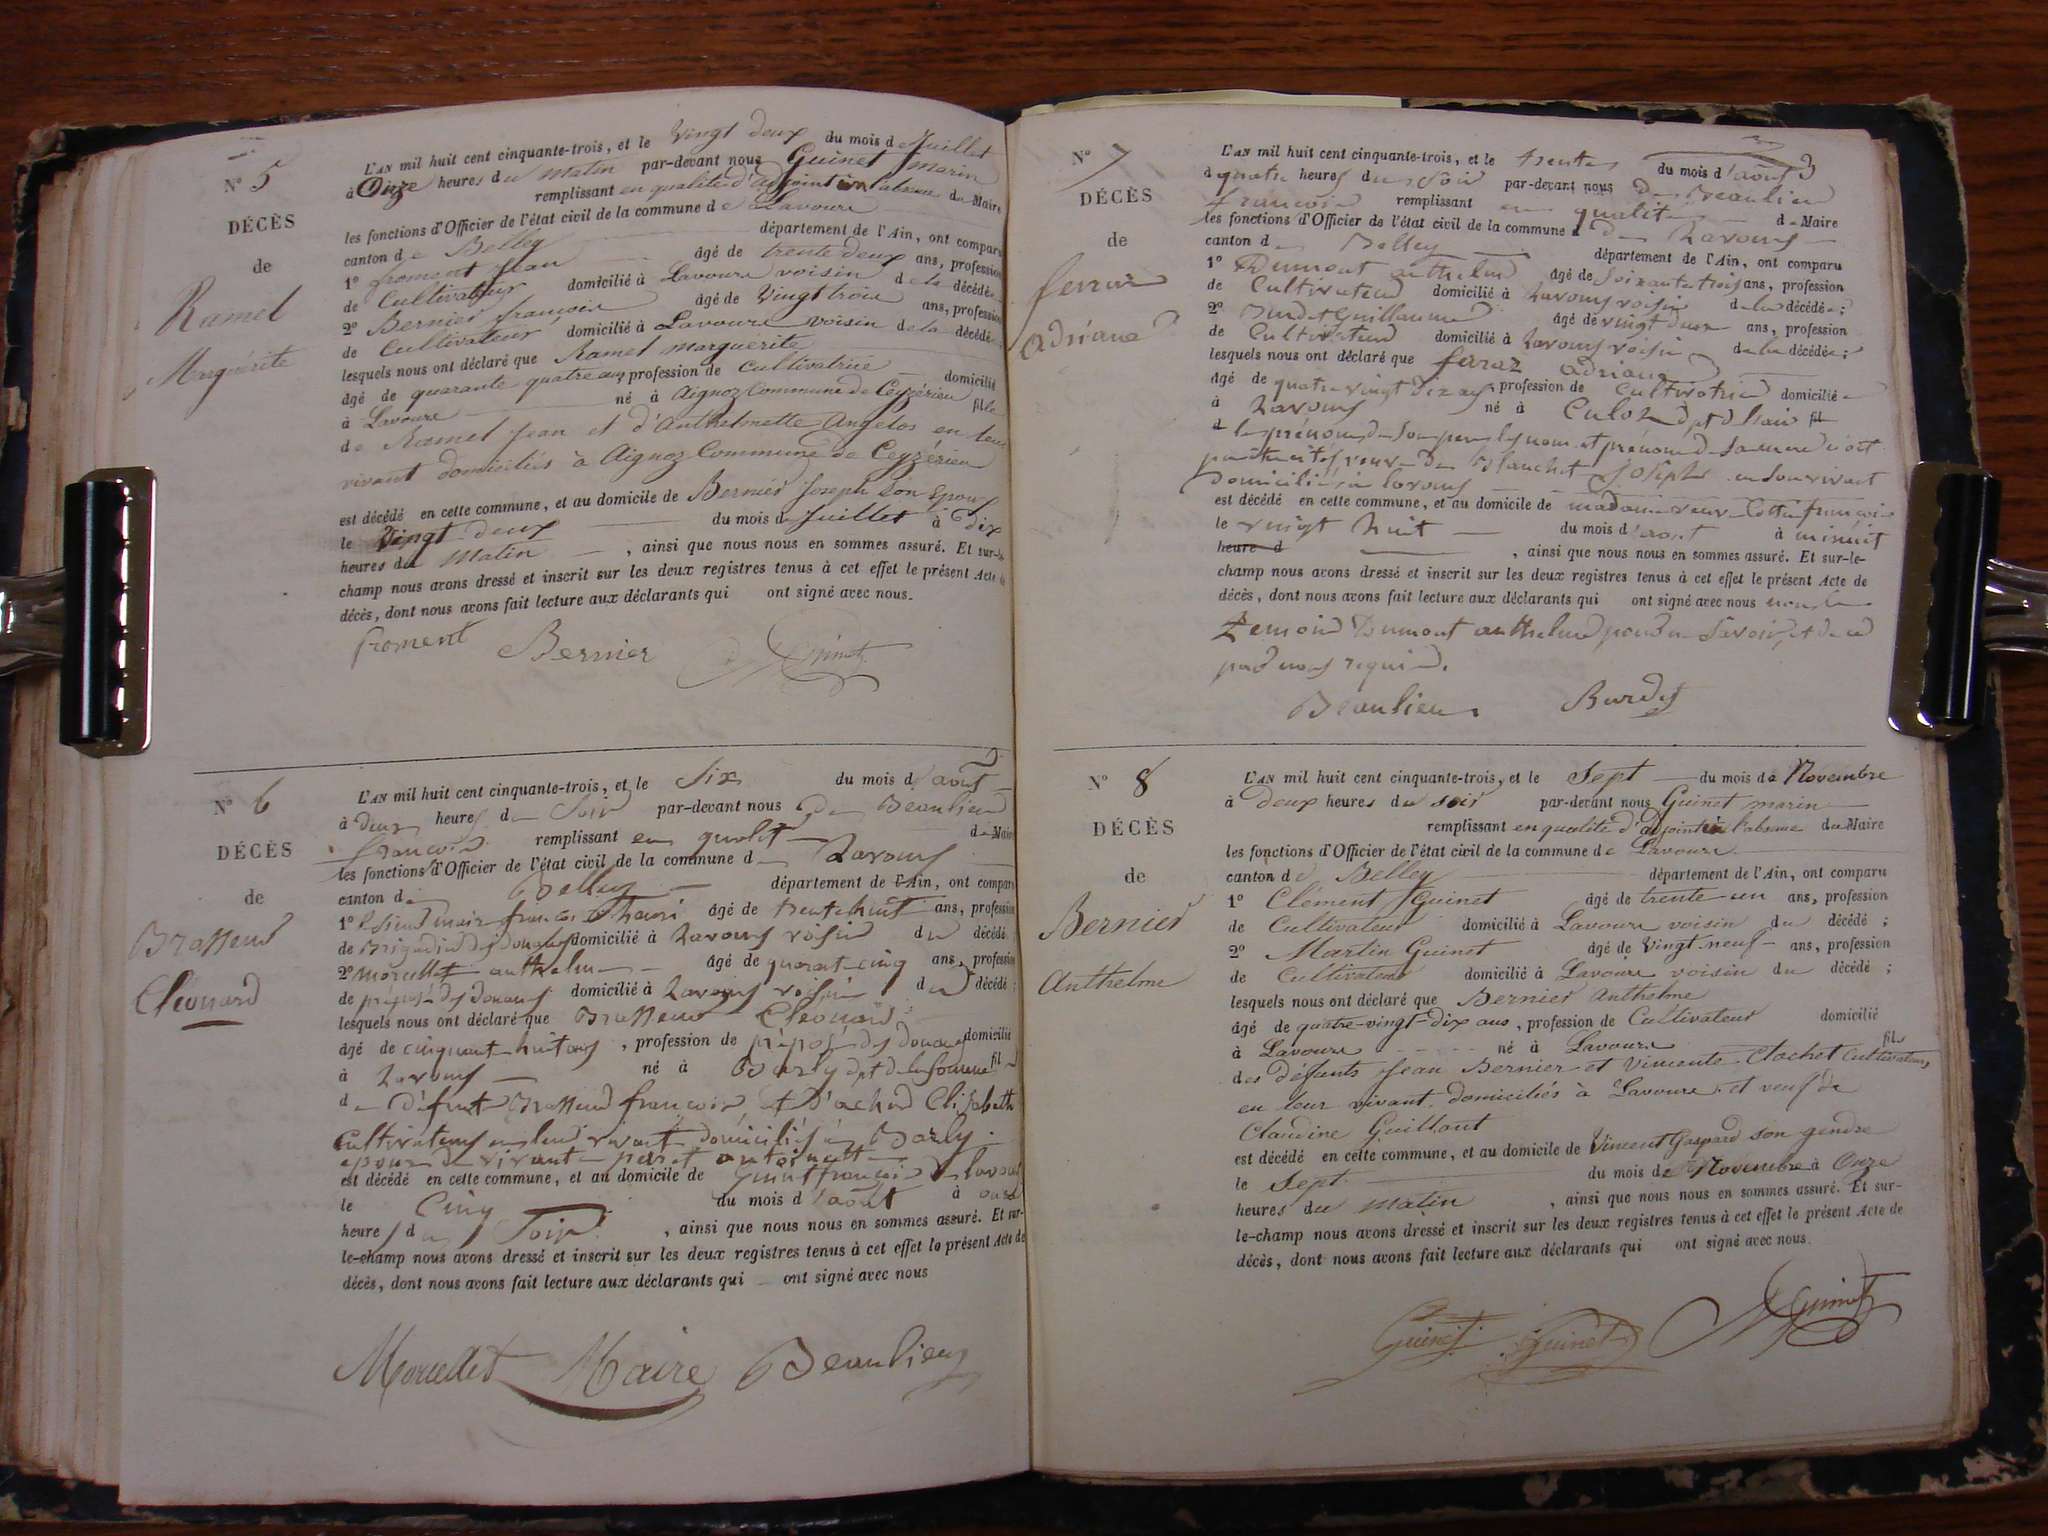 N° 5
DÉCÈS
de
Ramel
Marguerite
L'AN mil huit cent cinquante-trois, et le Vingt deux du mois de Juillet
à Onze heures du matin par-devant nous Guinet marin
remplissant en qualité d'adjoint en l'absence du Maire
les fonctions d'Officier de l'état civil de la commune de Lavours
canton de Belley département de l'Ain, ont comparu
1° froment Jean âgé de trente deux ans, profession
de Cultivateur domicilié à Lavours voisin de la décédée
2° Bernier françois âgé de Vingt trois ans, profession
de Cultivateur domicilié à Lavours voisin de la décédée
lesquels nous ont déclaré que Ramel marguerite
âgé de quarante quatre ans profession de cultivatrice domicilié
à Lavours né à Aignoz Commune de Ceyzérieu fille
de Ramel Jean et d'Anthelmette Angelos en leur
vivant domiciliés à Aignoz Commune de Ceyzérieu
est décédé en cette commune, et au domicile de Bernier Joseph son Epoux
le Vingt deux du mois de Juillet à Dix
heures du Matin , ainsi que nous nous en sommes assuré. Et sur-le-
champ nous avons dressé et inscrit sur les deux registres tenus à cet effet le présent Acte de
décès, dont nous avons fait lecture aux déclarants qui ont signé avec nous.
froment Bernier Guinet
N° 6
DÉCÈS
de
Brasseur
Cléonard
L'AN mil huit cent cinquante-trois, et le Six du mois d'août
à deux heures du Soir par-devant nous de Beaulieu
françois remplissant en qualité de Maire
les fonctions d'Officier de l'état civil de la commune de Lavours
canton de Belley département de l'Ain, ont comparu
1° le sieur maire âgé de trente huit ans, profession
de Brigadier des douanes domicilié à Lavours voisin du décédé
2° morellet anthelme âgé de quarante cinq ans, profession
de préposé des douanes domicilié à Lavours voisin du décédé ;
lesquels nous ont déclaré que Brasseur Cléonard
âgé de cinquante huit ans , profession de préposé des douanes domicilié
à Lavours né à Barly dpt de la Somme fil
de défunt Brasseur françois et d'achard Elisabeth
Cultivateurs en leur vivant domiciliés à Barly
epoux de vivante antoinette
est décédé en cette commune, et au domicile de Guinet françois à lavours
le Cinq du mois d'août à onze
heures du Soir , ainsi que nous nous en sommes assuré. Et sur-
le-champ nous avons dressé et inscrit sur les deux registres tenus à cet effet le présent Acte de
décès, dont nous avons fait lecture aux déclarants qui ont signé avec nous
Morellet Maire Beaulieu
N° 7
DÉCÈS
de
ferraz
adriane
L'AN mil huit cent cinquante-trois, et le trente du mois d'août
à quatre heures du Soir par-devant nous de Beaulieu
françois remplissant en qualité de Maire
les fonctions d'Officier de l'état civil de la commune de Lavours
canton de Belley département de l'Ain, ont comparu
1° Dumont anthelme âgé de soixante trois ans, profession
de Cultivateur domicilié à Lavours voisin de la décédée ;
2° Burdet Guillaume âgé de vingt deux ans, profession
de Cultivateur domicilié à Lavours voisin de la décédée ;
lesquels nous ont déclaré que faraz adriane
âgé de quatre vingt dix ans profession de Cultivatrice domicilié
à Lavours né à Culoz dpt de l'ain fil
de le prénom de son pere les nom et prénom de sa mere
veuve de Blanchet Joseph en son vivant
domicilié à lavours
est décédé en cette commune, et au domicile de madame veuve françoise
le vingt huit du mois d'août à minuit
heure d , ainsi que nous nous en sommes assuré. Et sur-le-
champ nous avons dressé et inscrit sur les deux registres tenus à cet effet le présent Acte de
décès, dont nous avons fait lecture aux déclarants qui ont signé avec nous non le
temoin Dumont anthelme pour ne savoir et de ce
par nous requis.
Beaulieu Burdet
N° 8
DÉCÈS
de
Bernier
Anthelme
L'AN mil huit cent cinquante-trois, et le Sept du mois de Novembre
à deux heures du soir par-devant nous Guinet marin
remplissant en qualité d'adjoint en l'absence du Maire
les fonctions d'Officier de l'état civil de la commune de Lavours
canton de Belley département de l'Ain, ont comparu
1° Clément Guinet âgé de trente un ans, profession
de Cultivateur domicilié à Lavours voisin du décédé ;
2° Martin Guinet âgé de Vingt neuf ans, profession
de Cultivateur domicilié à Lavours voisin du décédé ;
lesquels nous ont déclaré que Bernier Anthelme
âgé de quatre-vingt-dix ans, profession de Cultivateur domicilié
à Lavours né à Lavours fils
des défunts Jean Bernier et Vincente Clochet Cultivateurs
en leur vivant domiciliés à Lavours et veuf de
Claudine Guillaut
est décédé en cette commune, et au domicile de Vincent Gaspard son gendre
le Sept du mois de Novembre à Onze
heures du Matin , ainsi que nous nous en sommes assuré. Et sur-
le-champ nous avons dressé et inscrit sur les deux registres tenus à cet effet le présent Acte de
décès, dont nous avons fait lecture aux déclarants qui ont signé avec nous.
Guinet Guinet Guinet